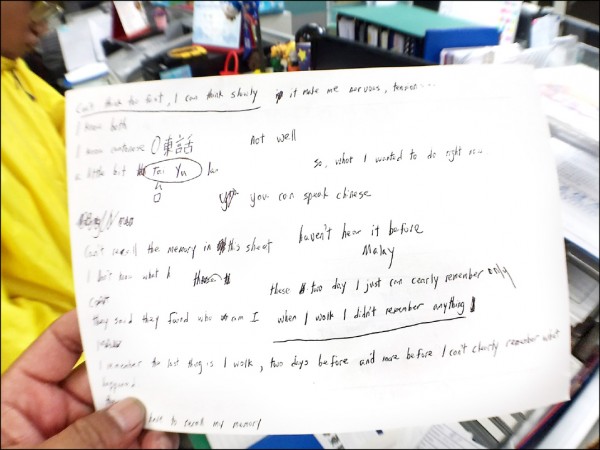 Can't think too fast, I can think slowly if it make me nervous, tension....
I know both
I mean cantonese 廣東話 not well
a little bit Tai Yu
so, what I wanted to do right now
you can speak chinese
haven't hear it before
Can't recall the memory in this sheet
Malay
I don't know what
these two day I just can clearly remember only
They said they found who am I when I wake I didn't remember anything
I remember the last thing is I work, two days before and more before I can't clearly remember what
happened
have to my memory